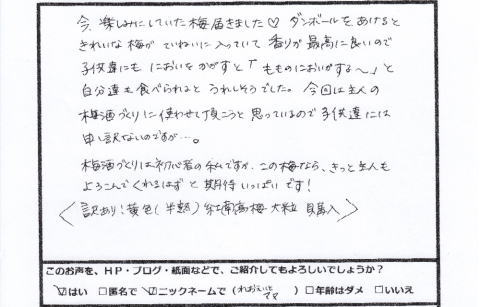 今、楽しみにしていた梅届きました♡ ダンボールをあけると
きれいな梅が ていねいに入っていて、香りが最高に良いので
子供達にも においをかがすと「もものにおいがする〜」と
自分達も食べられると うれしそうでした。今回は主人の
梅酒づくりに使わせて頂こうと思っているので子供達には
申し訳ないのですが…。
梅酒づくりは初心者の私ですが、この梅なら、きっと主人も
よろこんでくれるはずと期待いっぱいです！
〈訳あり！黄色（半熟）紅南高梅 大粒 購入〉
このお声を、HP・ブログ・紙面などで、ご紹介してもよろしいでしょうか？
☑はい □匿名で ☑ニックネームで（ ）□年齢はダメ □いいえ